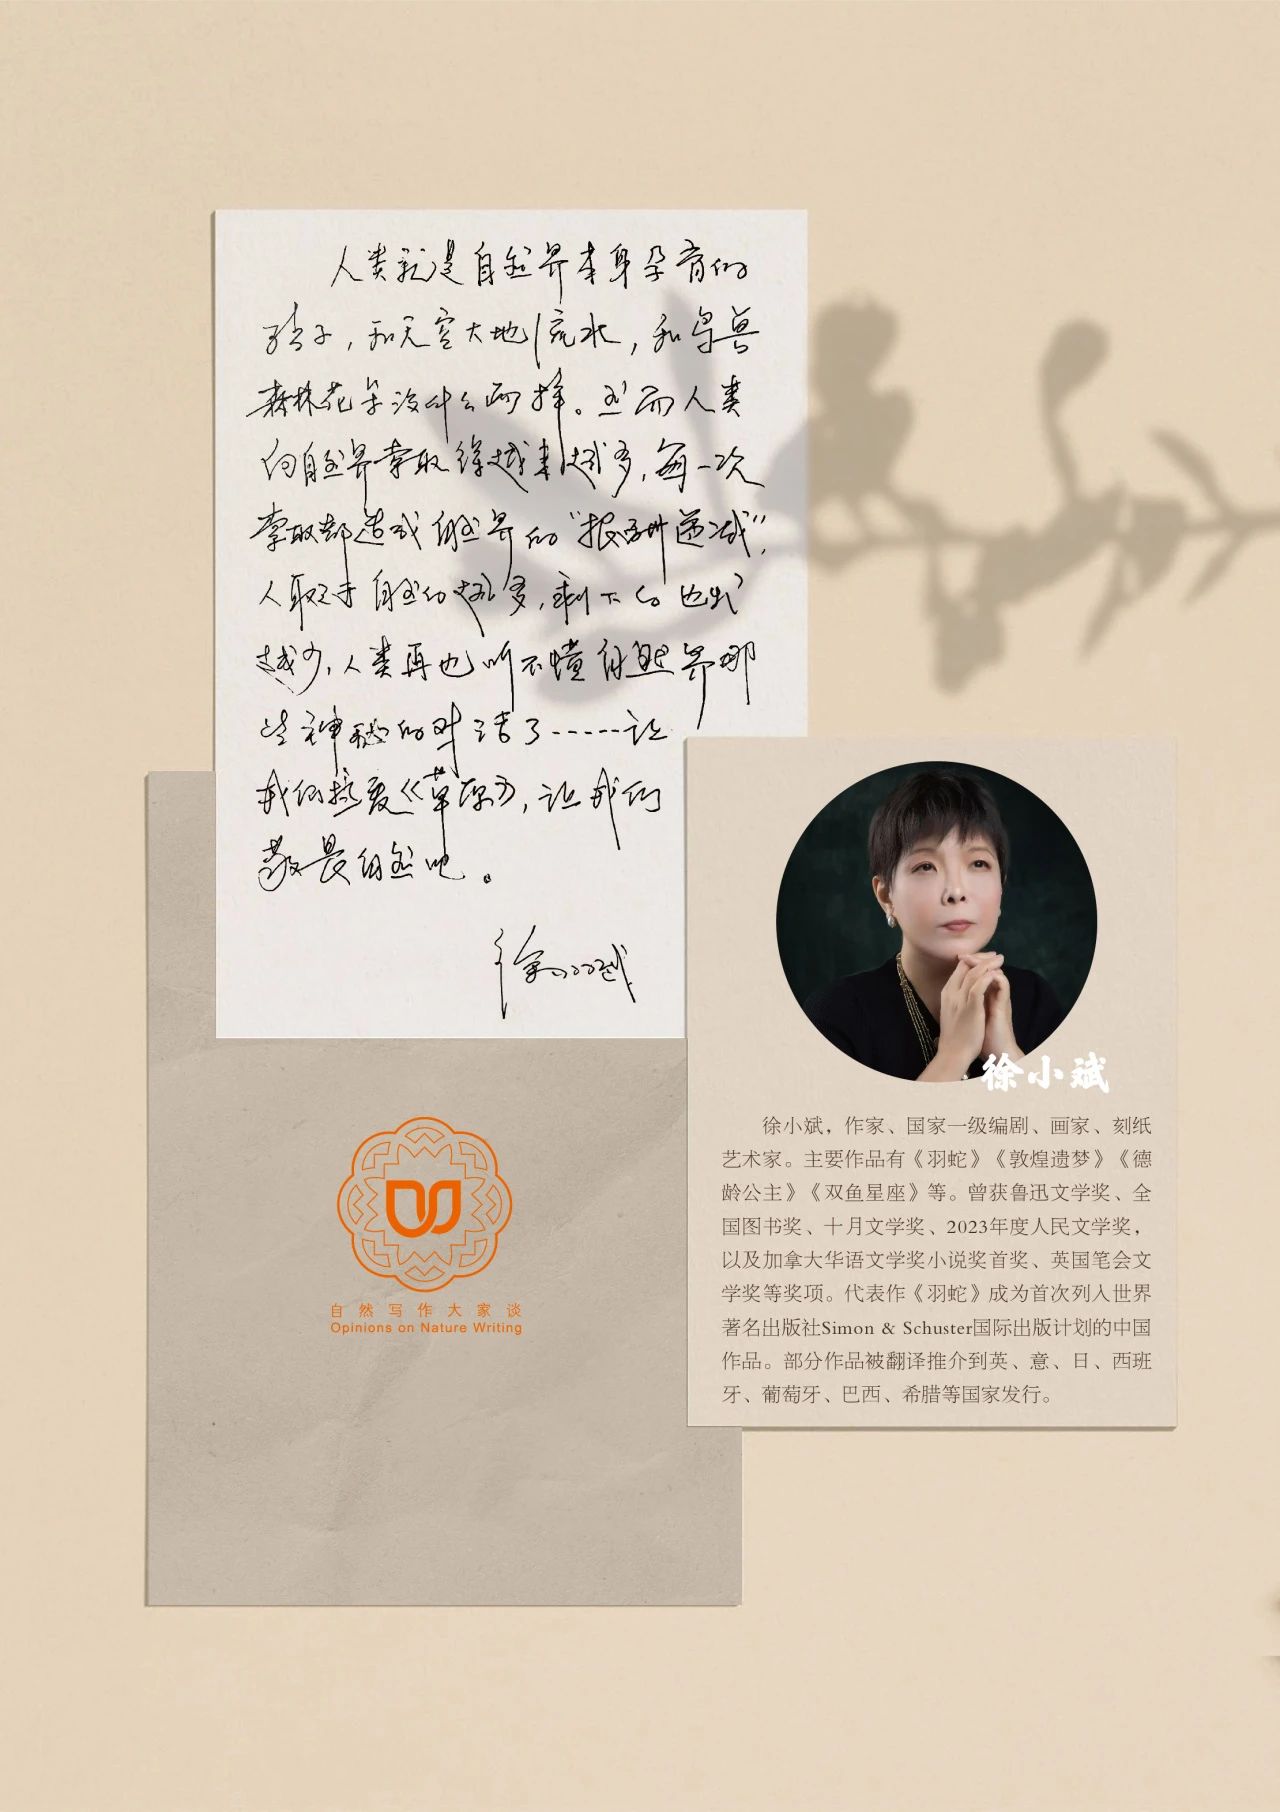 人类就是自然界本身孕育的
孩子，和天空大地流水，和鸟兽
森林花草没什么两样。然而人类
向自然界索取得越来越多，每一次
索取都造成自然界的“报酬递减”，
人取之于自然的越多，剩下的也就
越少，人类再也听不懂自然界那
些神秘的对话了……让
我们热爱《草原》，让我们
敬畏自然吧。
徐小斌
徐小斌
徐小斌，作家、国家一级编剧、画家、刻纸
艺术家。主要作品有《羽蛇》《敦煌遗梦》《德
龄公主》《双鱼星座》等。曾获鲁迅文学奖、全
国图书奖、十月文学奖、2023年度人民文学奖，
以及加拿大华语文学奖小说奖首奖、英国笔会文
学奖等奖项。代表作《羽蛇》成为首次列入世界
著名出版社Simon & Schuster国际出版计划的中国
作品。部分作品被翻译推介到英、意、日、西班
牙、葡萄牙、巴西、希腊等国家发行。
自然写作大家谈
Opinions on Nature Writing